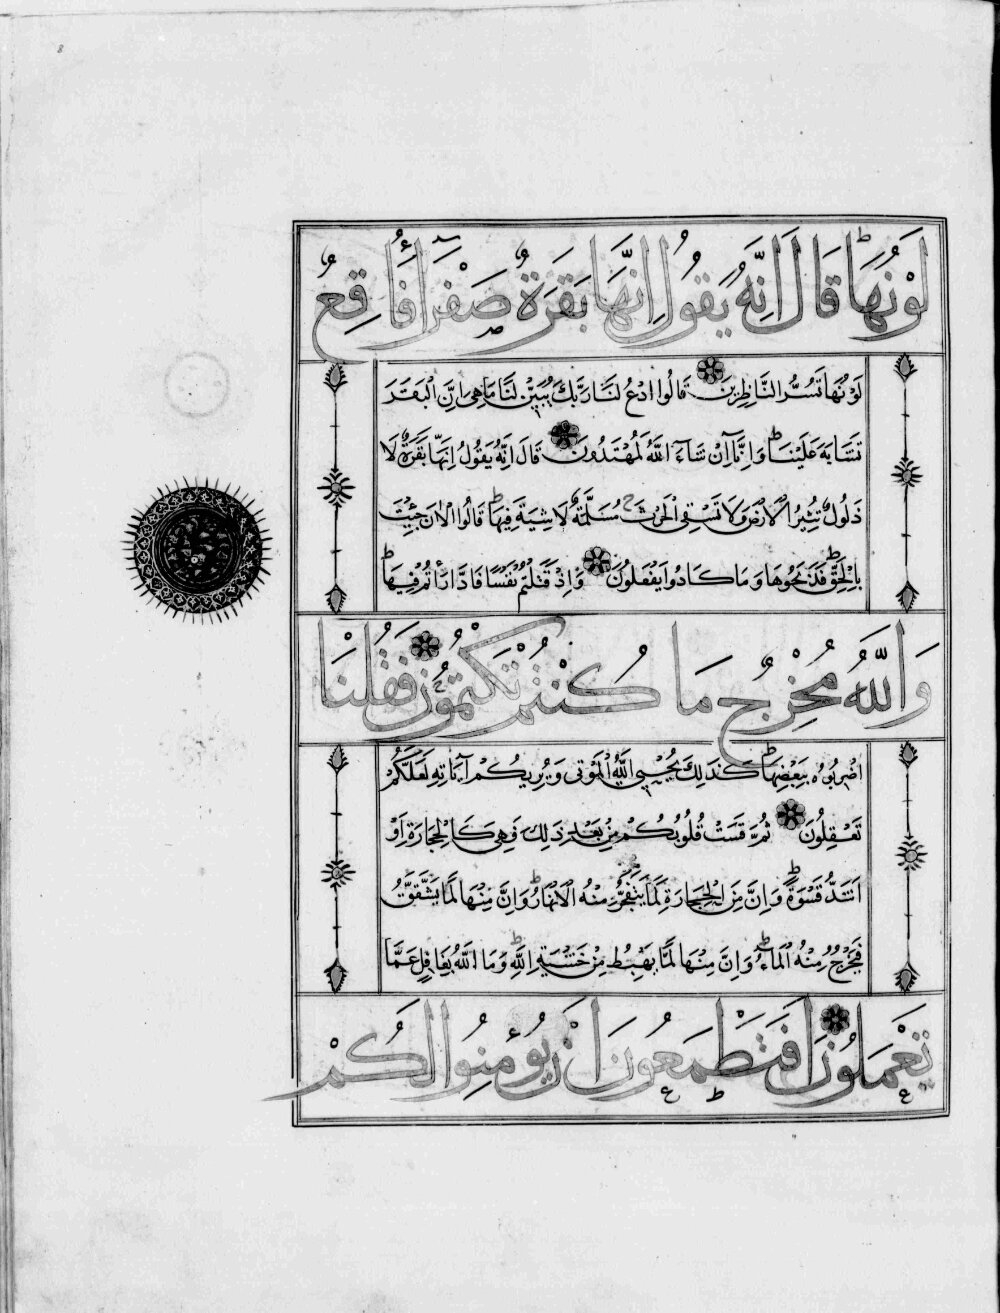 8
لَوْنُهَا قَالَ اِنَّهُ يَقُولُ اِنَّهَا بَقَرَةٌ صَفْرَآءُ فَاقِعٌ
لَوْنُهَا تَسُرُّ النَّاظِرِينَ قَالُوا ادْعُ لَنَا رَبَّكَ يُبَيِّنْ لَنَا مَا هِىَ اِنَّ الْبَقَرَ
تَشَابَهَ عَلَيْنَا وَاِنَّآ اِنْ شَآءَ اللّٰهُ لَمُهْتَدُونَ قَالَ اِنَّهُ يَقُولُ اِنَّهَا بَقَرَةٌ لَا
ذَلُولٌ تُثِيرُ الْاَرْضَ وَلَا تَسْقِى الْحَرْثَ مُسَلَّمَةٌ لَا شِيَةَ فِيهَا قَالُوا الْاٰنَ جِئْتَ
بِالْحَقِّ فَذَبَحُوهَا وَمَا كَادُوا يَفْعَلُونَ وَاِذْ قَتَلْتُمْ نَفْسًا فَادَّارَأْتُمْ فِيهَا
وَاللّٰهُ مُخْرِجٌ مَا كُنْتُمْ تَكْتُمُونَ فَقُلْنَا
اضْرِبُوهُ بِبَعْضِهَا كَذَلِكَ يُحْيِي اللّٰهُ الْمَوْتَى وَيُرِيكُمْ آيَاتِهِ لَعَلَّكُمْ
تَعْقِلُونَ ثُمَّ قَسَتْ قُلُوبُكُمْ مِنْ بَعْدِ ذَلِكَ فَهِىَ كَالْحِجَارَةِ اَوْ
اَشَدُّ قَسْوَةً وَاِنَّ مِنَ الْحِجَارَةِ لَمَا يَتَفَجَّرُ مِنْهُ الْاَنْهَارُ وَاِنَّ مِنْهَا لَمَا يَشَّقَّقُ
فَيَخْرُجُ مِنْهُ الْمَآءُ وَاِنَّ مِنْهَا لَمَا يَهْبِطُ مِنْ خَشْيَةِ اللّٰهِ وَمَا اللّٰهُ بِغَافِلٍ عَمَّا
تَعْمَلُونَ اَفَتَطْمَعُونَ اَنْ يُؤْمِنُوا لَكُمْ